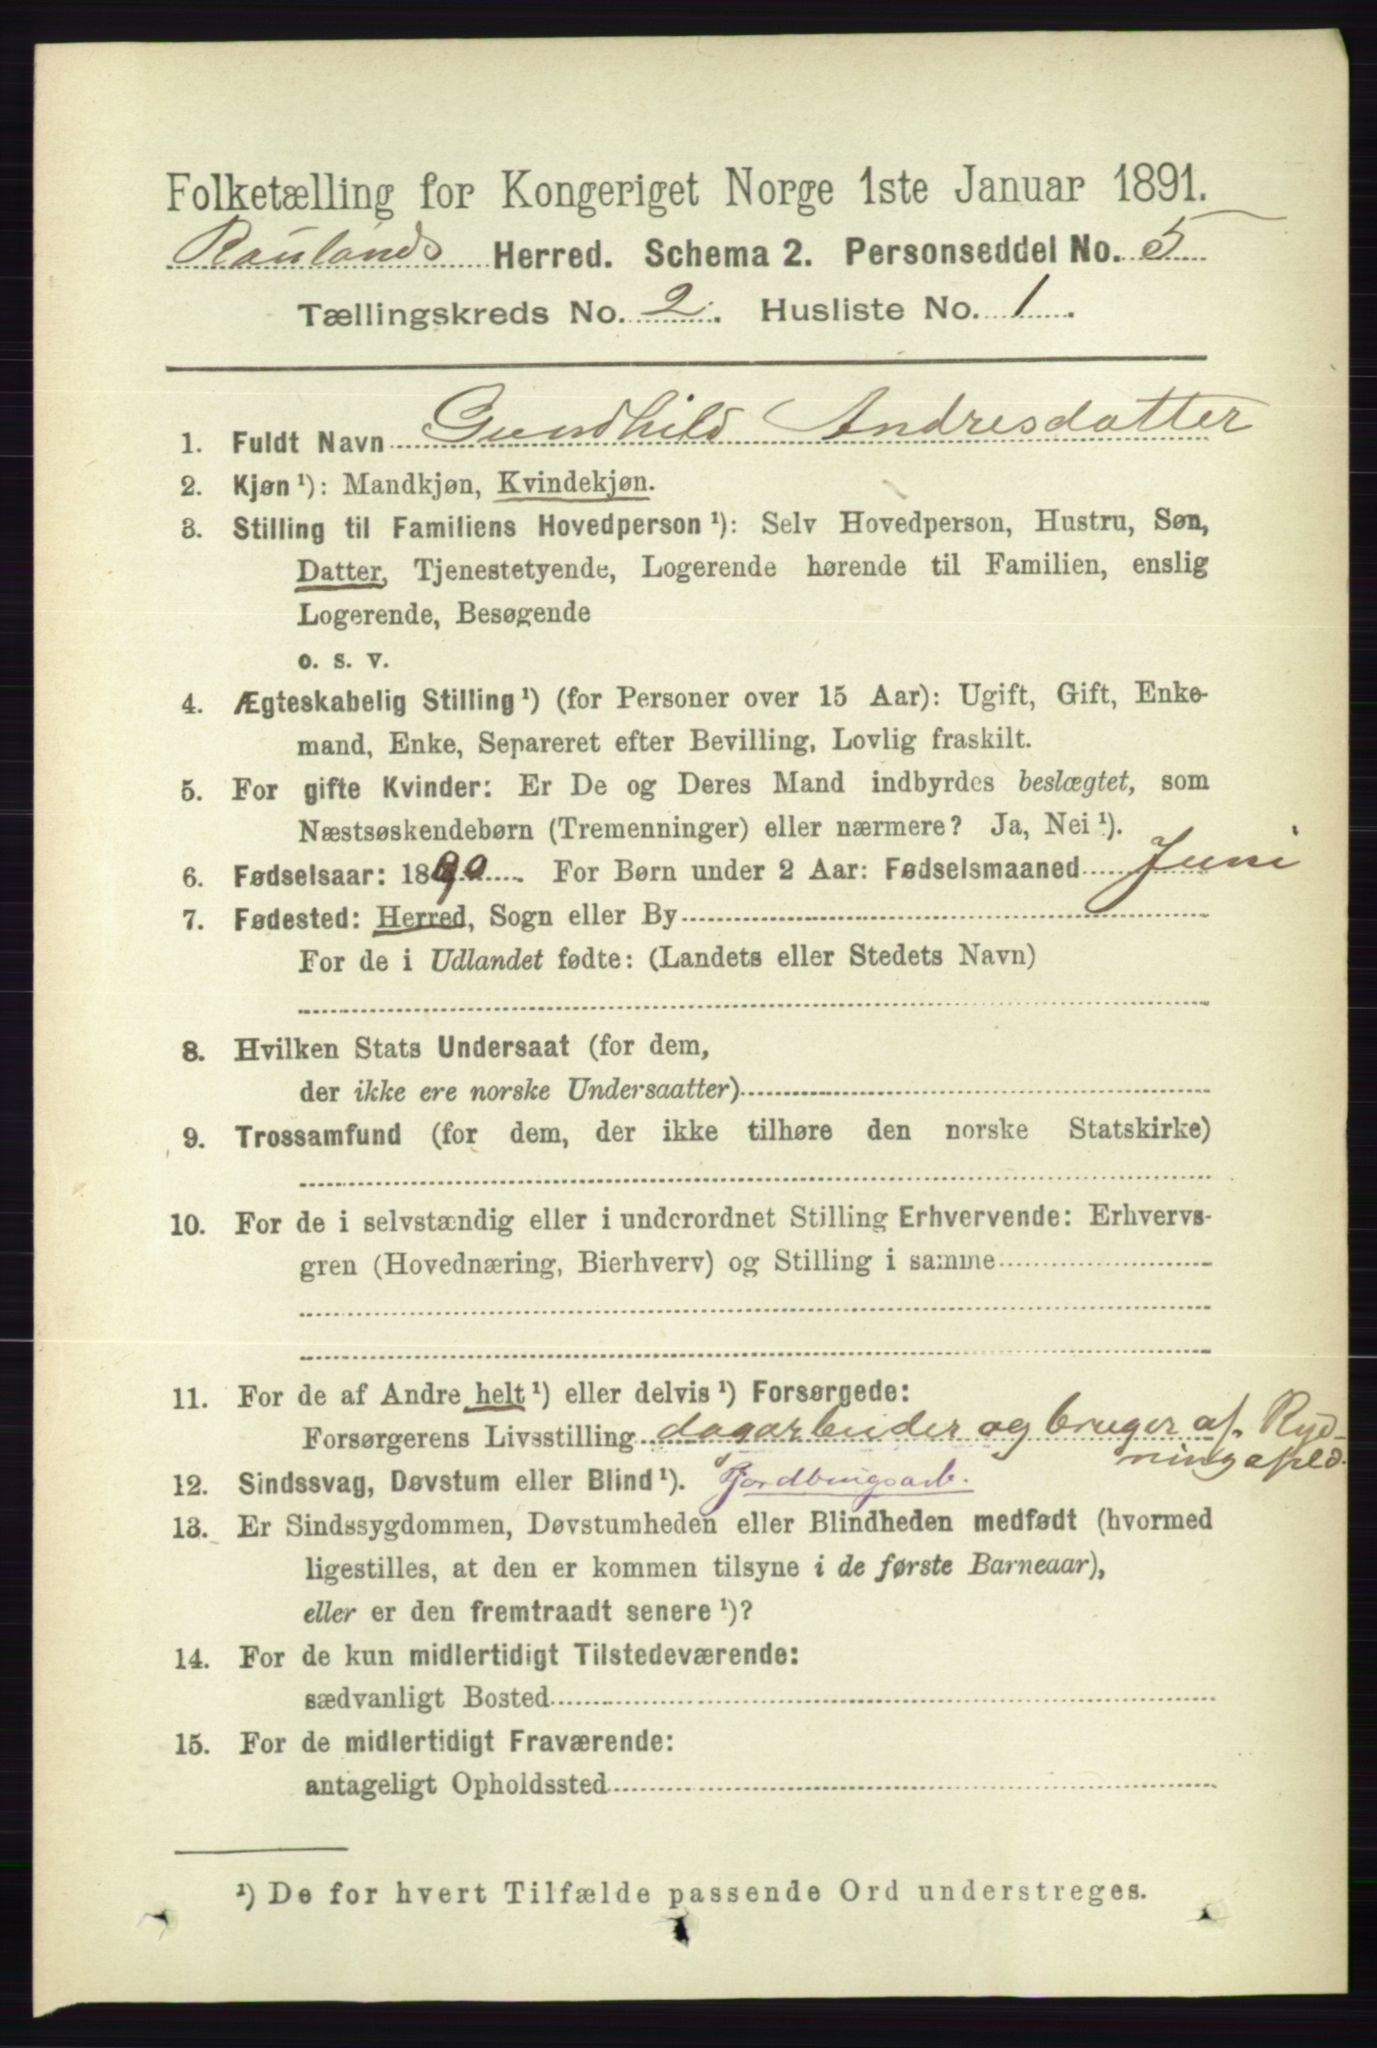 Folketælling for Kongeriget Norge 1ste Januar 1891.
Raulands Herred. Schema 2. Personseddel No. 5
Tællingskreds No. 2. Husliste No. 1.
1. Fuldt Navn Gundhild Andresdatter
2. Kjøn ¹): Mandkjøn, Kvindekjøn.
3. Stilling til Familiens Hovedperson ¹): Selv Hovedperson, Hustru, Søn,
Datter, Tjenestetyende, Logerende hørende til Familien, enslig
Logerende, Besøgende
o. s. v.
4. Ægteskabelig Stilling ¹) (for Personer over 15 Aar): Ugift, Gift, Enke-
mand, Enke, Separeret efter Bevilling, Lovlig fraskilt.
5. For gifte Kvinder: Er De og Deres Mand indbyrdes beslægtet, som
Næstsøskendebørn (Tremenninger) eller nærmere? Ja, Nei ¹).
6. Fødselsaar: 1890. For Børn under 2 Aar: Fødselsmaaned Juni
7. Fødested: Herred, Sogn eller By
For de i Udlandet fødte: (Landets eller Stedets Navn)
8. Hvilken Stats Undersaat (for dem,
der ikke ere norske Undersaatter)
9. Trossamfund (for dem, der ikke tilhøre den norske Statskirke)
10. For de i selvstændig eller i underordnet Stilling Erhvervende: Erhvervs-
gren (Hovednæring, Bierhverv) og Stilling i samme
11. For de af Andre helt ¹) eller delvis ¹) Forsørgede:
Forsørgerens Livsstilling dagarbeider og bruger af Ryd-
ningspld.
12. Sindssvag, Døvstum eller Blind ¹). Jordbrugsarb.
13. Er Sindssygdommen, Døvstumheden eller Blindheden medfødt (hvormed
ligestilles, at den er kommen tilsyne i de første Barneaar),
eller er den fremtraadt senere ¹)?
14. For de kun midlertidigt Tilstedeværende:
sædvanligt Bosted
15. For de midlertidigt Fraværende:
antageligt Opholdssted
¹) De for hvert Tilfælde passende Ord understreges.